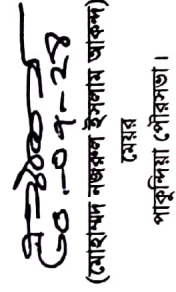 (মোহাম্মদ নজরুল ইসলাম আকন্দ)
মেয়র
পাকুন্দিয়া পৌরসভা।